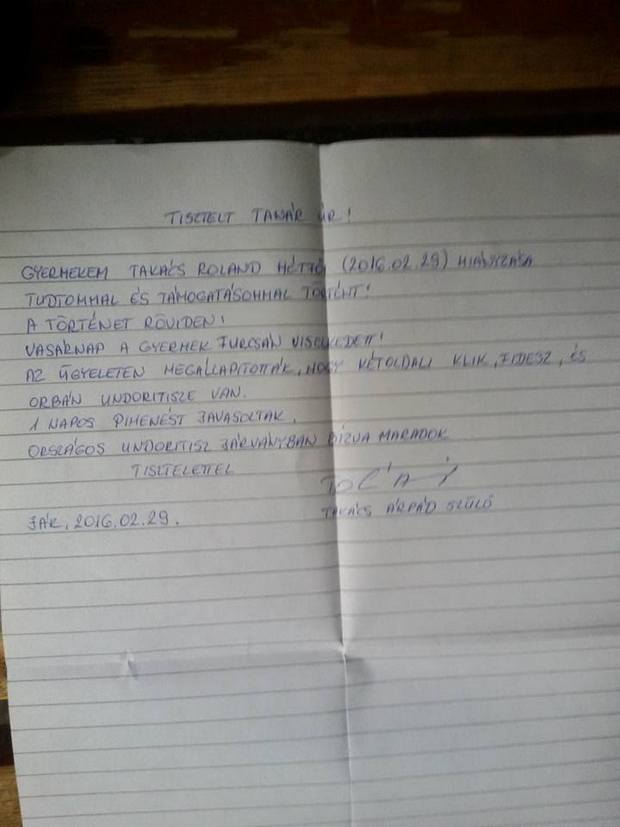 TISZTELT TANÁR ÚR!
GYERMEKEM TAKÁCS ROLAND HÉTFŐI (2016.02.29) HIÁNYZÁSA
TUDTOMMAL ÉS TÁMOGATÁSOMMAL TÖRTÉNT!
A TÖRTÉNET RÖVIDEN!
VASÁRNAP A GYERMEK FURCSÁN VISELKEDETT!
AZ ÜGYELETEN MEGÁLLAPÍTOTTÁK, HOGY KÉTOLDALI KLIK, FIDESZ, ÉS
ORBÁN UNDORITISZE VAN.
1 NAPOS PIHENÉST JAVASOLTAK.
ORSZÁGOS UNDORITISZ JÁRVÁNYBAN BÍZVA MARADOK
TISZTELETTEL
TAKÁCS ÁRPÁD SZÜLŐ
2016.02.29.